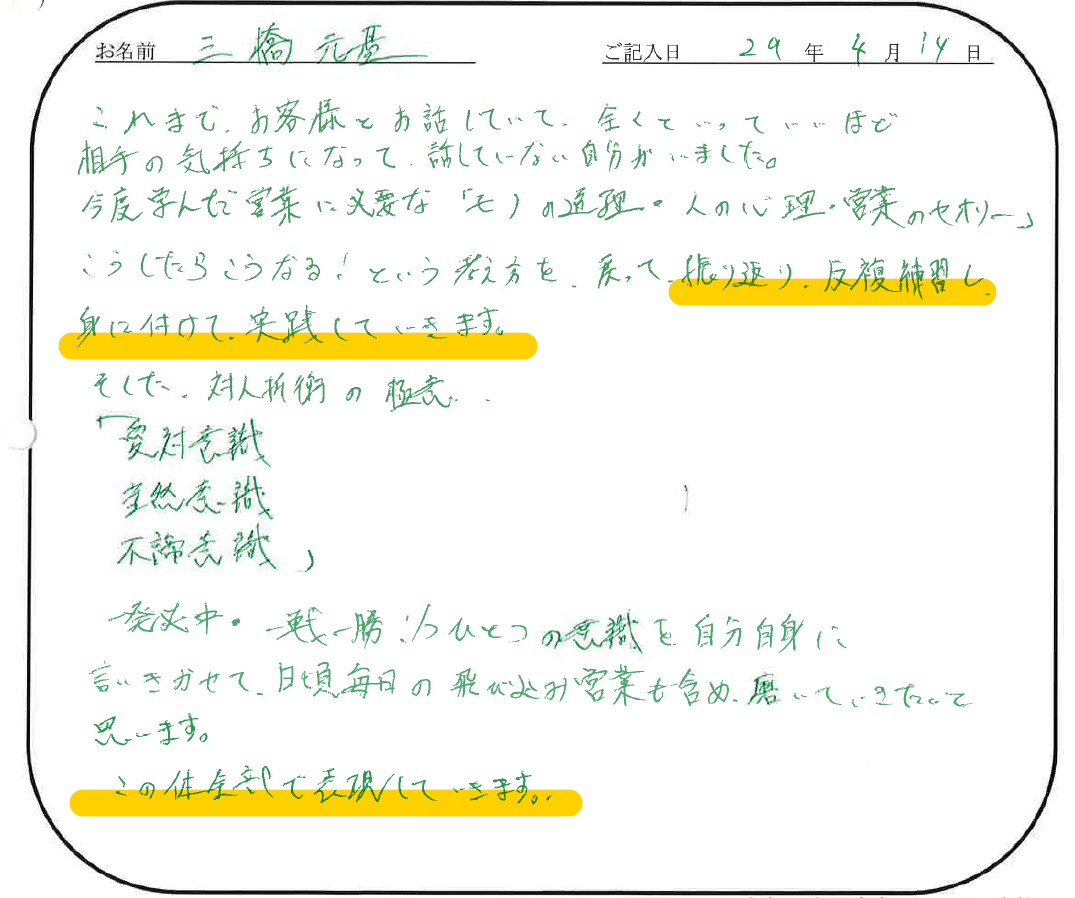 お名前 三橋 元 ご記入日 29年4月14日
これまで、お客様とお話していて、全くといっていいほど
相手の気持ちになって、話していない自分がいました。
今度学んだ営業に必要な「モノの道理・人の心理・営業のセオリー」
こうしたらこうなる!という考え方を、振り返り、反複練習し、
身に付けて、実践していきます。
そした、対人折衝の極意、
「絶対意識
当然意識
不諦意識」
一発必中・一戦一勝!ひとつひとつの意識を自分自身に
言いきかせて、日頃毎日の飛び込み営業も含め、磨いていきたいと
思います。
この体全部で表現していきます。